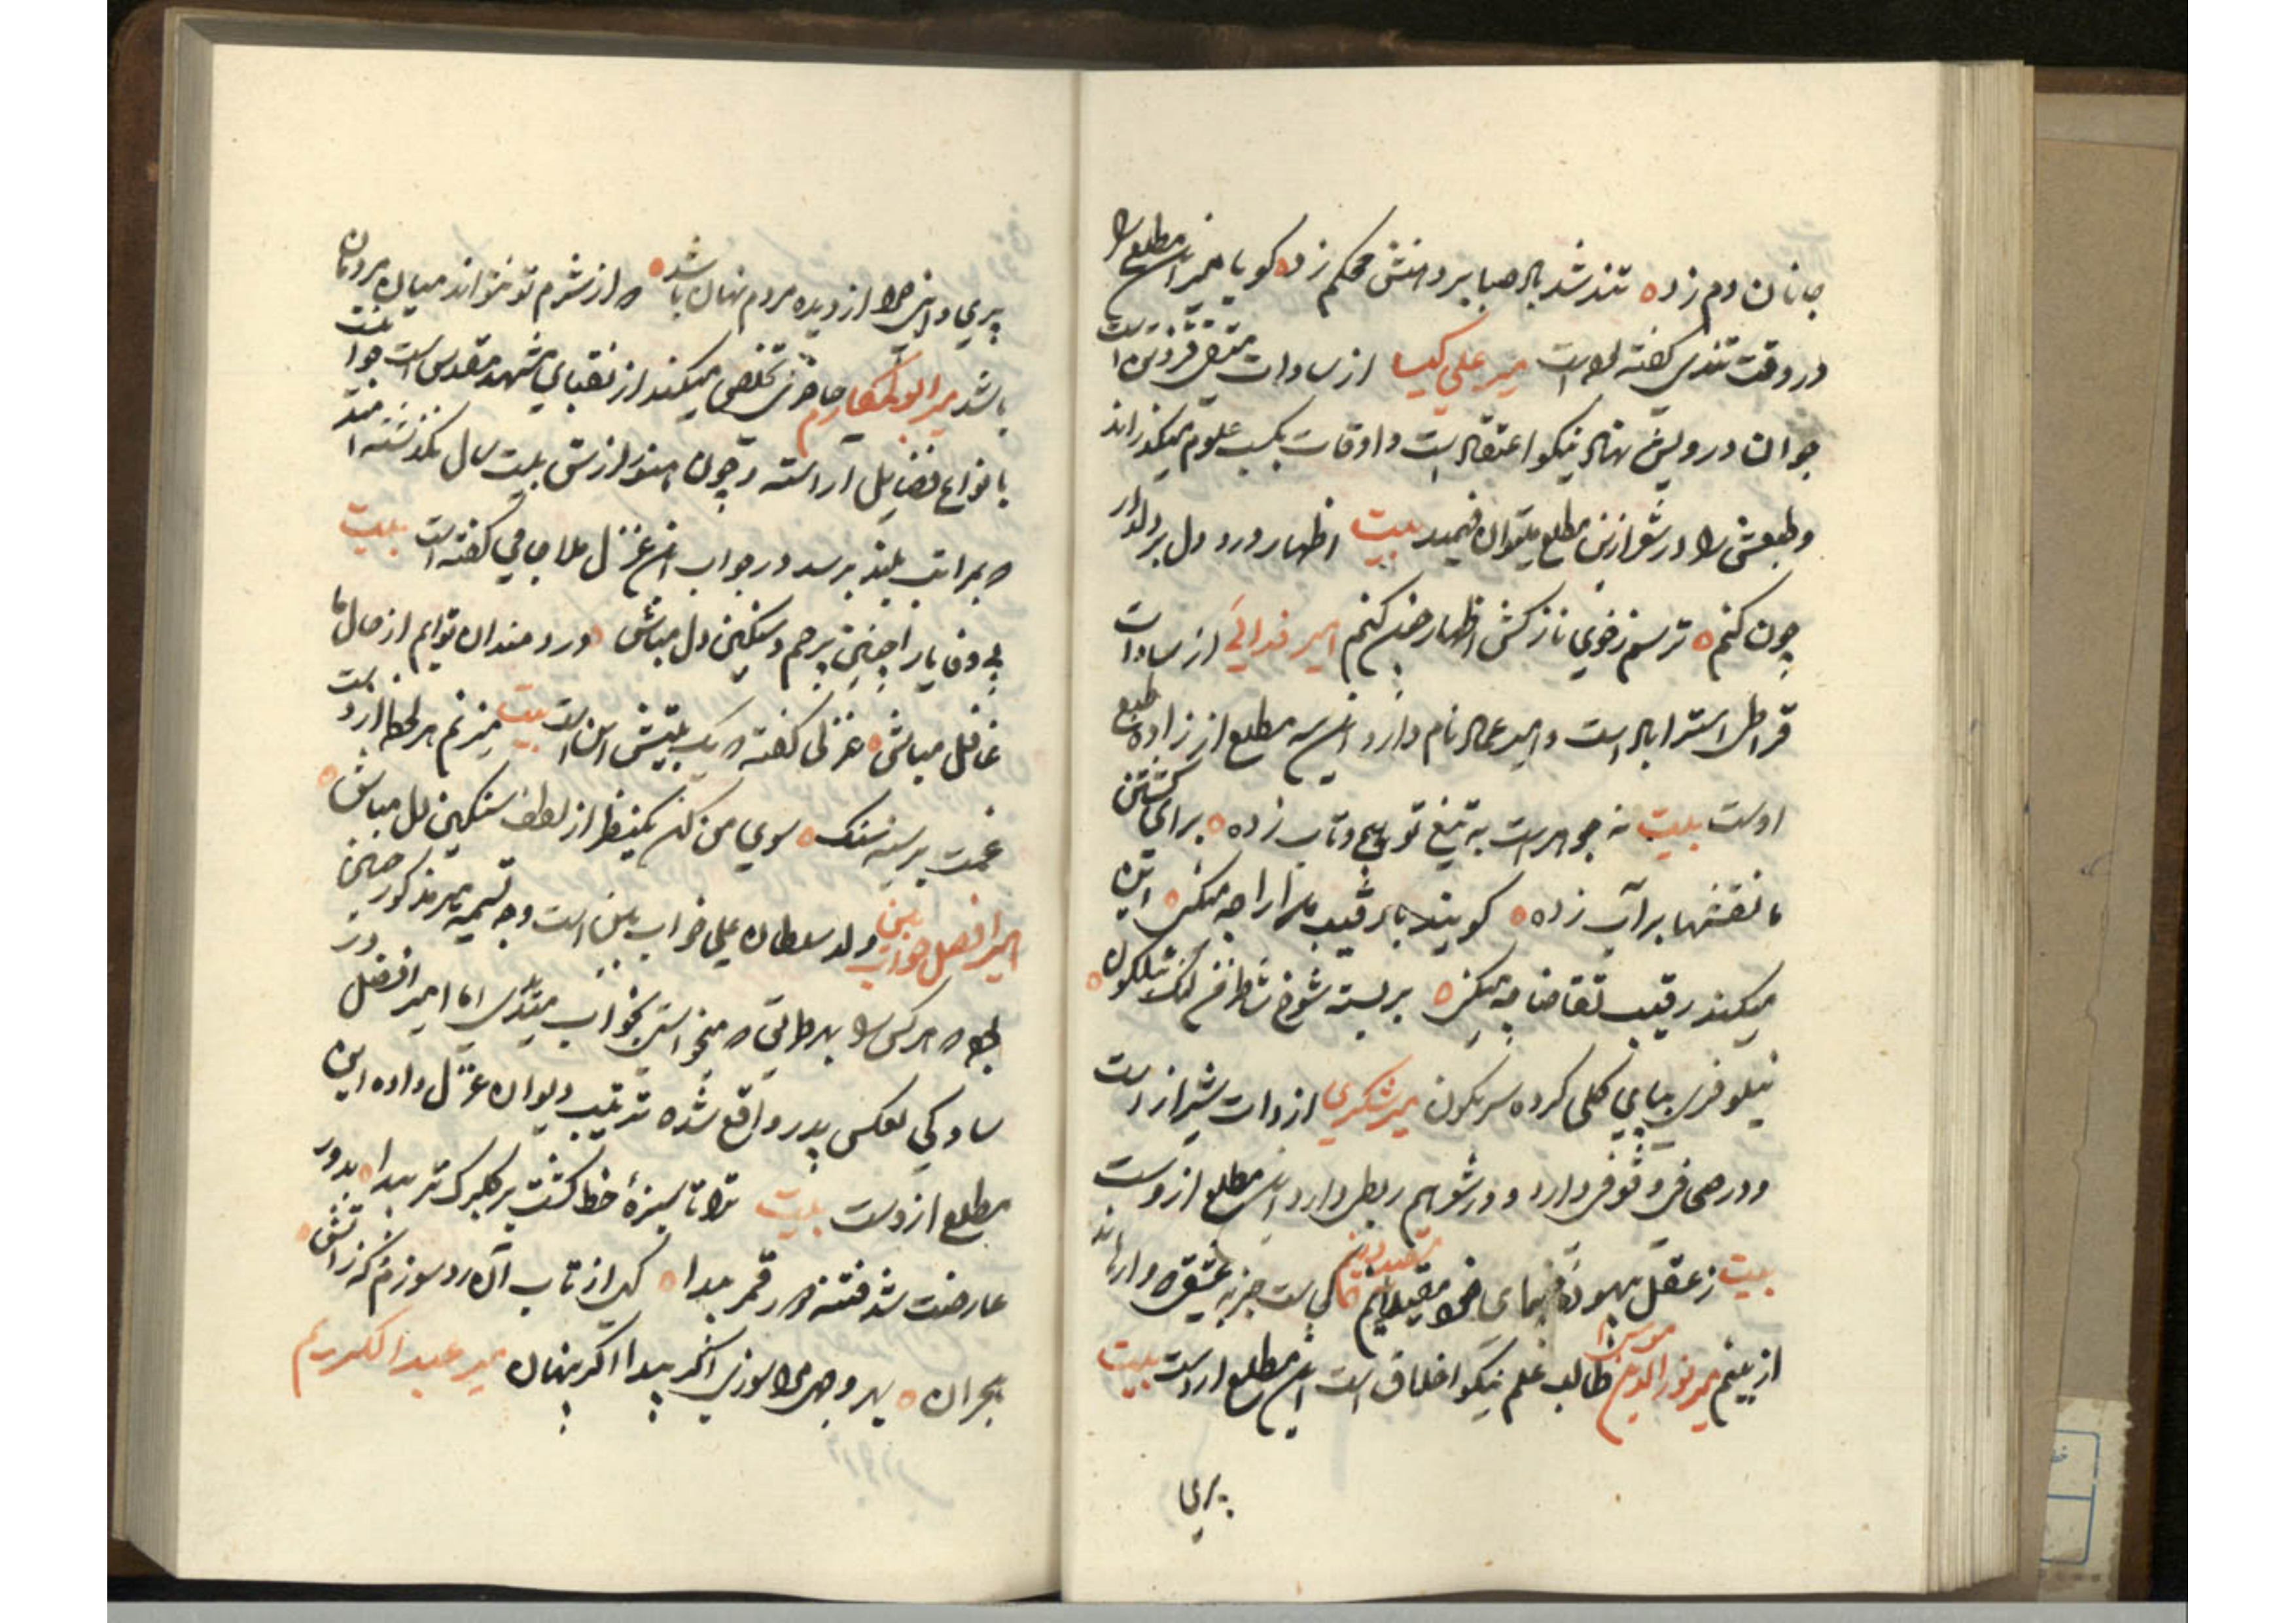 جانان دم زده تند شد باد صبا بر دهنش محکم زده کویا میر این مطلع را
در وقت تندی کفته بوده است میر علی کیا از سادات قزوین است
جوان درویش نهاد نیکو اعتقاد است و اوقات بکسب علوم میکذراند
و طبعش را در شعر ازین مطلع میتوان فهمید بیت اظهار درد دل بر دلدار
چون کنم ترسم ز خوی نازکش اظهار چون کنم امیر فدائی از سادات
استراباد است و امیر عماد نام دارد این سه مطلع از زاده طبع
اوست بیت نه جوهرست به تیغ تو پیچ و تاب زده برای کشتن
ما نقشها بر آب زده کویند با رقیب مدارا چه میکنی
میکند رقیب تقاضا چه میکنی بر بسته شوخ
نیلوفری بپای کلی کرده سرنکون میر شکری از سادات شیراز است
و در صحافی وقوفی دارد و در شعر هم ربطی دارد این مطلع ازوست
بیت ز عقل بیهوده مقید
از بینم میر نورالدین طالب علم نیکو اخلاق است این مطلع ازوست بیت
پری
پری از دیده مردم نهان باشد که از شرم تو نتواند میان مردمان
باشد میر ابوالمکارم تخلص میکند از نقبای مشهد مقدس است جوانیست
بانواع فضایل آراسته و چون هنوز از سنش بیست سال نکذشته امید
که بمراتب بلند برسد در جواب این غزل ملا جامی کفته است بیت
بی وفا یارا چنین بیرحم و سنکین دل مباش دردمندان توایم از حال ما
غافل مباش غزلی کفته که یک بیتش این است بیت میزنم هر لحظه از دست
غمت بر سینه سنک سوی من کن یکنظر از لطف سنکین دل مباش
امیر افضل خواب بین ولد سلطان علی خواب بین است وجه تسمیه میر مذکور چنین
بوده که هر کس را بهر طریقی که میخواستی بخواب میدی اما امیر افضل در
سادکی بعکس پدر واقع شده ترتیب دیوان غزل داده این
مطلع ازوست بیت ترا تا سبزهٔ خط کشت بر کلبرک تر پیدا بدور
عارضت شد فتنهٔ دور قمر پیدا کهی از تاب آن رو سوزم که ز آتش
هجران بهر وجهی مرا سوزی اکر پیدا اکر پنهان میر عبد الکریم